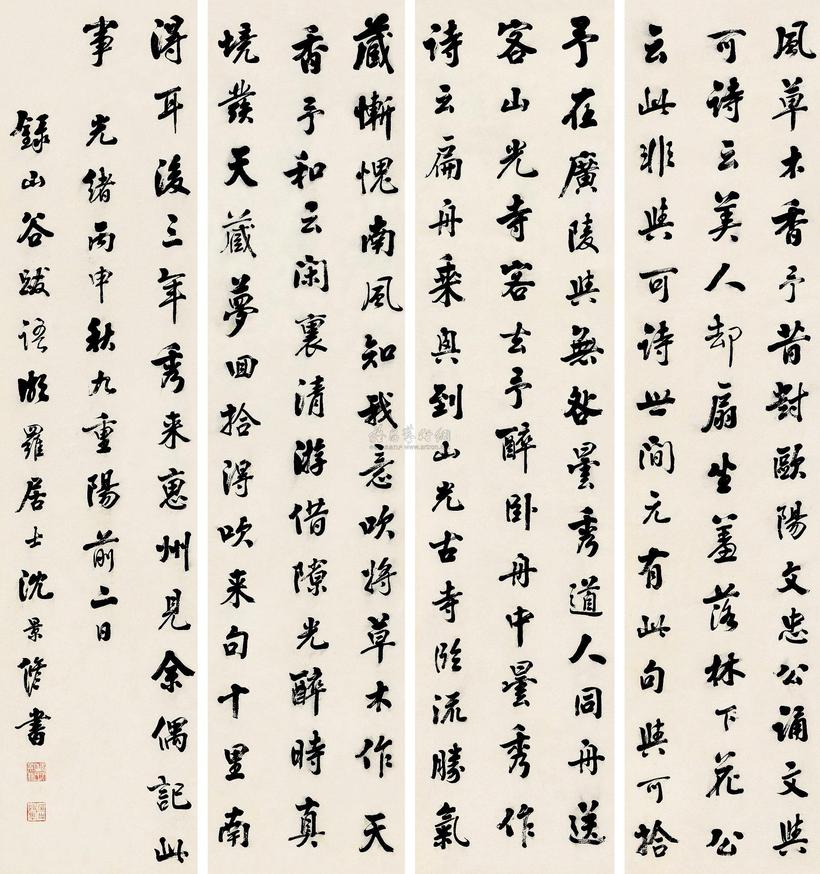 風草木香予昔對歐陽文忠公誦文與
可詩云美人却扇坐羞落林下花公
云此非與可詩世間元有此句與可拾
予在廣陵與無咎曇秀道人同舟送
客山光寺客去予醉卧舟中曇秀作
詩云扁舟乘興到山光古寺臨流勝氣
藏慚愧南風知我意吹將草木作天
香予和云閑裏清游借隙光醉時真
境發天藏夢回拾得吹来句十里南
得耳後三年秀来惠州見余偶記此
事 光緒丙申秋九重陽前二日
録山谷跋語羅居士沈景修書